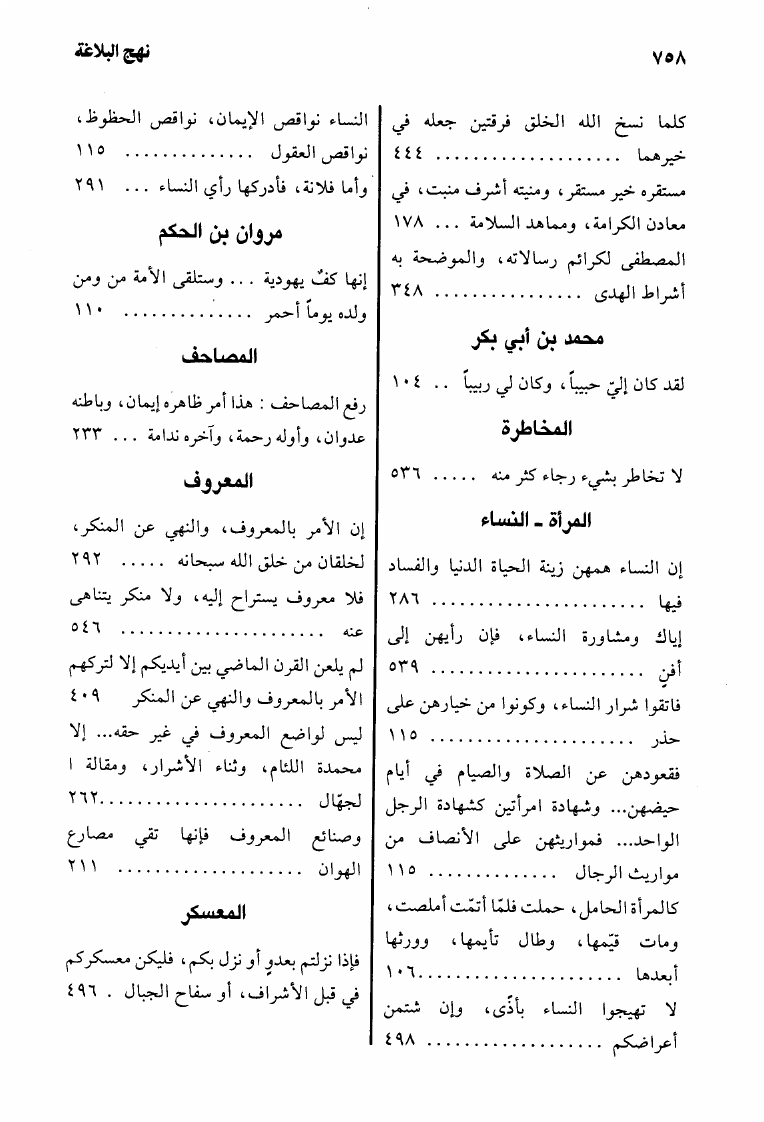 ٧٥٨
نهج البلاغة
كلما نسخ الله الخلق فرقتين جعله في
خيرهما .................... ٤٤٤
مستقره خير مستقر، ومنبته أشرف منبت، في
معادن الكرامة، ومماهد السلامة ... ١٧٨
المصطفى لكرائم رسالاته، والموضحة به
أشراط الهدى ................ ٣٤٨
محمد بن أبي بكر
لقد كان إليّ حبيباً، وكان لي ربيباً .. ١٠٤
المخاطرة
لا تخاطر بشيء رجاء كثر منه ..... ٥٣٦
المرأة ـ النساء
إن النساء همهن زينة الحياة الدنيا والفساد
فيها ....................... ٢٨٦
إياك ومشاورة النساء، فإن رأيهن إلى
أفنٍ ....................... ٥٣٩
فاتقوا شرار النساء، وكونوا من خيارهن على
حذر ...................... ١١٥
فقعودهن عن الصلاة والصيام في أيام
حيضهن... وشهادة امرأتين كشهادة الرجل
الواحد... فمواريثهن على الأنصاف من
مواريث الرجال .............. ١١٥
كالمرأة الحامل، حملت فلمّا أتمّت أملصت،
ومات قيّمها، وطال تأيمها، وورثها
أبعدها ......................١٠٦
لا تهيجوا النساء بأذًى، وإن شتمن
أعراضكم ................... ٤٩٨
النساء نواقص الإيمان، نواقص الحظوظ،
نواقص العقول .............. ١١٥
وأما فلانة، فأدركها رأي النساء ... ٢٩١
مروان بن الحكم
إنها كفٌ يهودية ... وستلقى الأمة من ومن
ولده يوماً أحمر .............. ١١٠
المصاحف
رفع المصاحف : هذا أمر ظاهره إيمان، وباطنه
عدوان، وأوله رحمة، وآخره ندامة ... ٢٣٣
المعروف
إن الأمر بالمعروف، والنهي عن المنكر،
لخلقان من خلق الله سبحانه ..... ٢٩٢
فلا معروف يستراح إليه، ولا منكر يتناهى
عنه ...................... ٥٤٦
لم يلعن القرن الماضي بين أيديكم إلا لتركهم
الأمر بالمعروف والنهي عن المنكر ٤٠٩
ليس لواضع المعروف في غير حقه... إلا
محمدة اللئام، وثناء الأشرار، ومقالة ا
لجهّال ......................٢٦٢
وصنائع المعروف فإنها تقي مصارع
الهوان .................... ٢١١
المعسكر
فإذا نزلتم بعدوٍ أو نزل بكم، فليكن معسكركم
في قبل الأشراف، أو سفاح الجبال . ٤٩٦